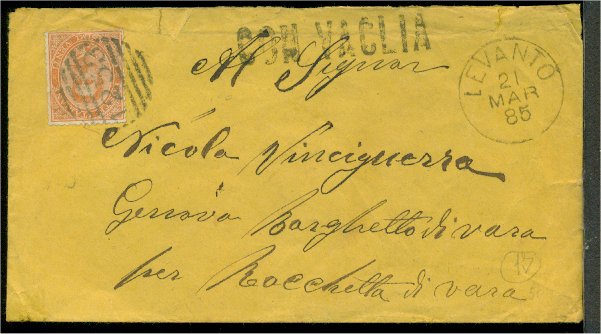 CON VAGLIA
Al Signor
LEVANTO
21
MAR
85
Nicola Vinciguerra
Genova Borghetto di vara
per Rocchetta di vara